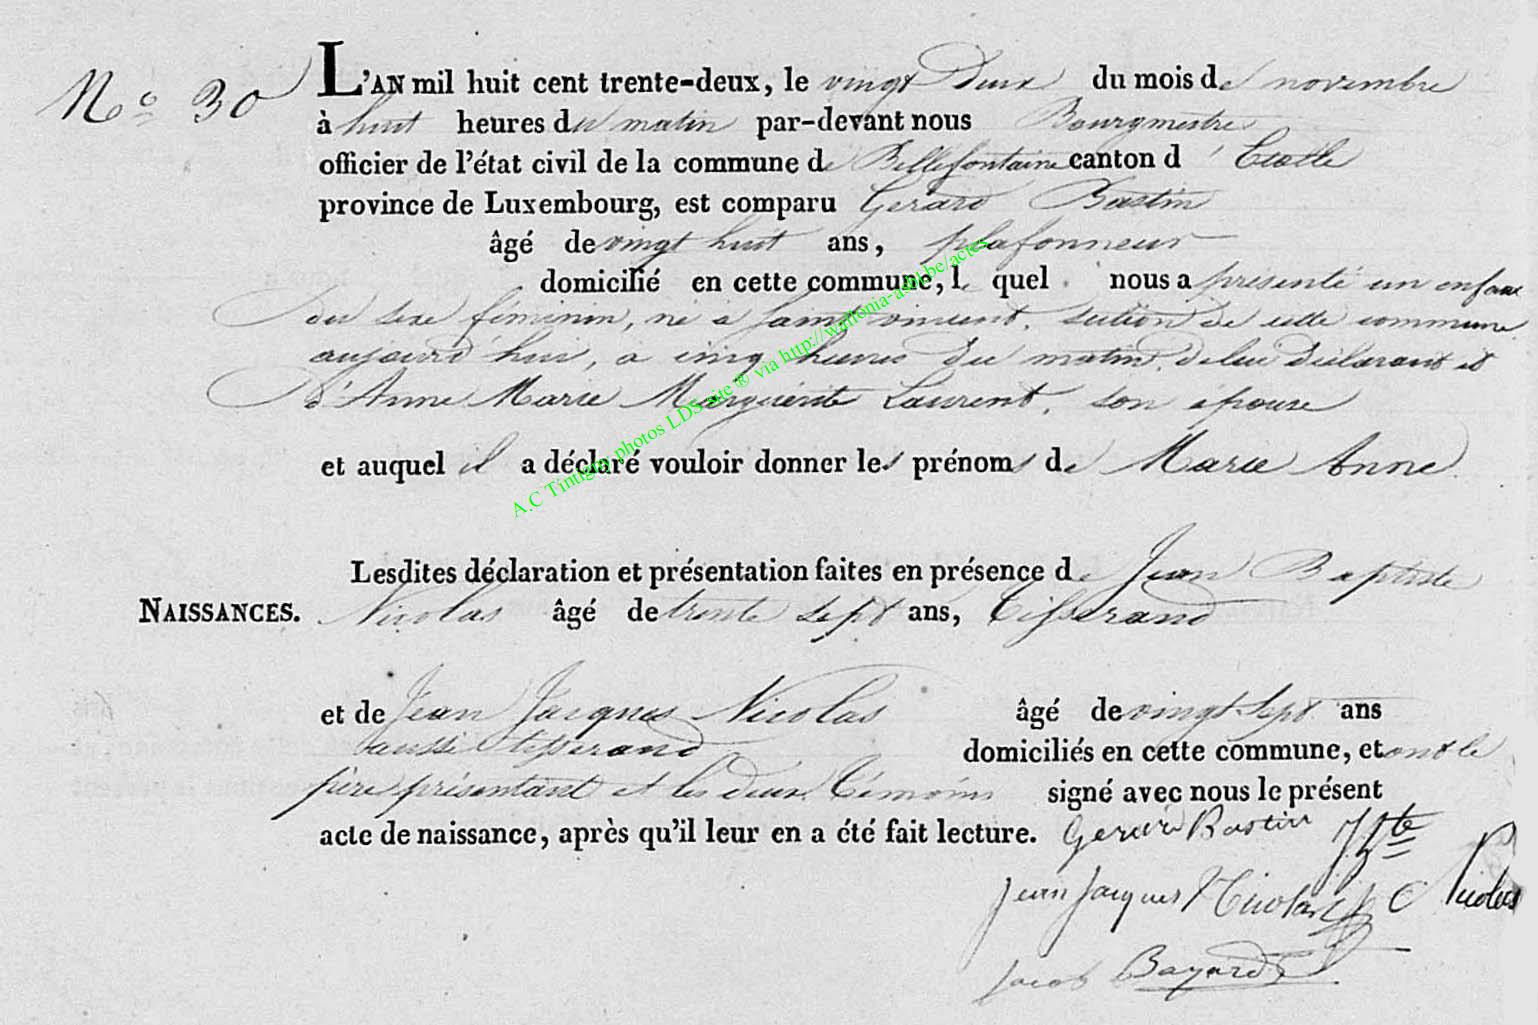 N.º 30
L'AN mil huit cent trente-deux, le vingt Deux du mois de novembre
à huit heures du matin par-devant nous Bourgmestre
officier de l'état civil de la commune de Bellefontaine canton d'Etalle
province de Luxembourg, est comparu Gerard Bastin
âgé de vingt huit ans, plafonneur
domicilié en cette commune, le quel nous a présenté un enfant
du sexe féminin, né a Saint vincent, section de cette commune
aujourd'hui, a cinq heures du matin, de lui déclarant et
d'Anne Marie Marguerite Laurent, son épouse
et auquel il a déclaré vouloir donner les prénoms de Marie Anne
Lesdites déclaration et présentation faites en présence de Jean Baptiste
NAISSANCES. Nicolas âgé de trente sept ans, Tisserand
et de Jean Jacques Nicolas âgé de vingt sept ans
aussi tisserand domiciliés en cette commune, et ont le
père présentant et les deux Témoins signé avec nous le présent
acte de naissance, après qu'il leur en a été fait lecture. Gerard Bastin
Jean Jacques Nicolas J Bte Nicolas
Jacob Bayard
A.C Tintigny photos LDS site ® via http://wallonia-asbl.be/actes